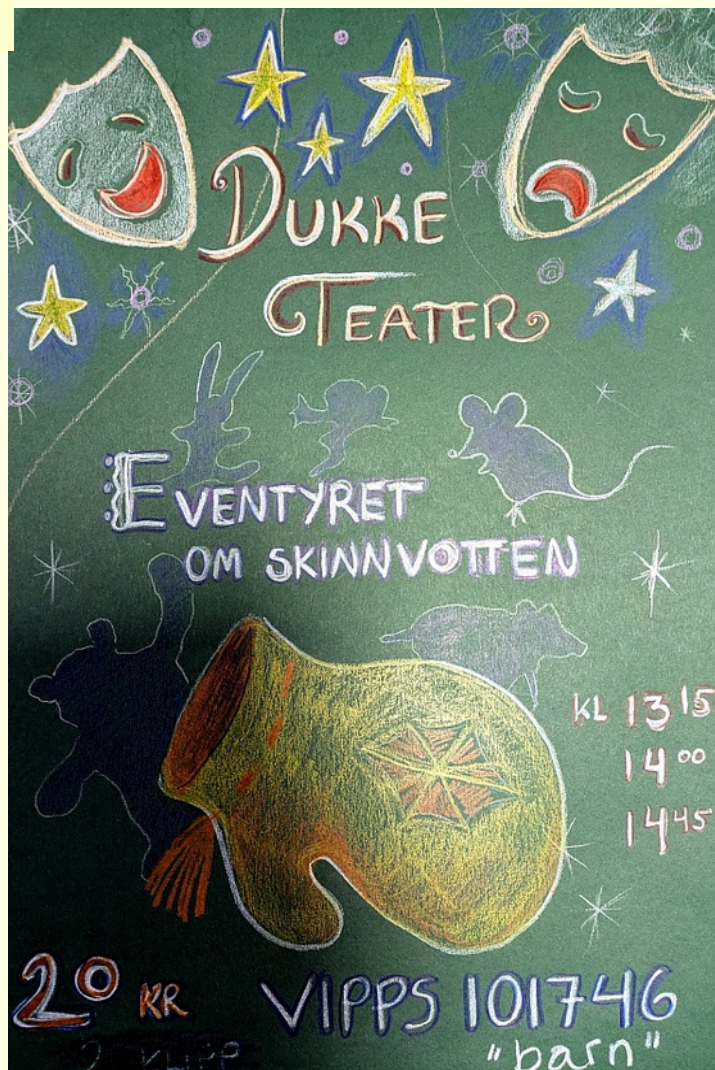 DUKKE
TEATER
EVENTYRET
OM SKINNVOTTEN
KL 13 15
14 00
14 45
20 KR VIPPS 101746
2 KLIPP "barn"